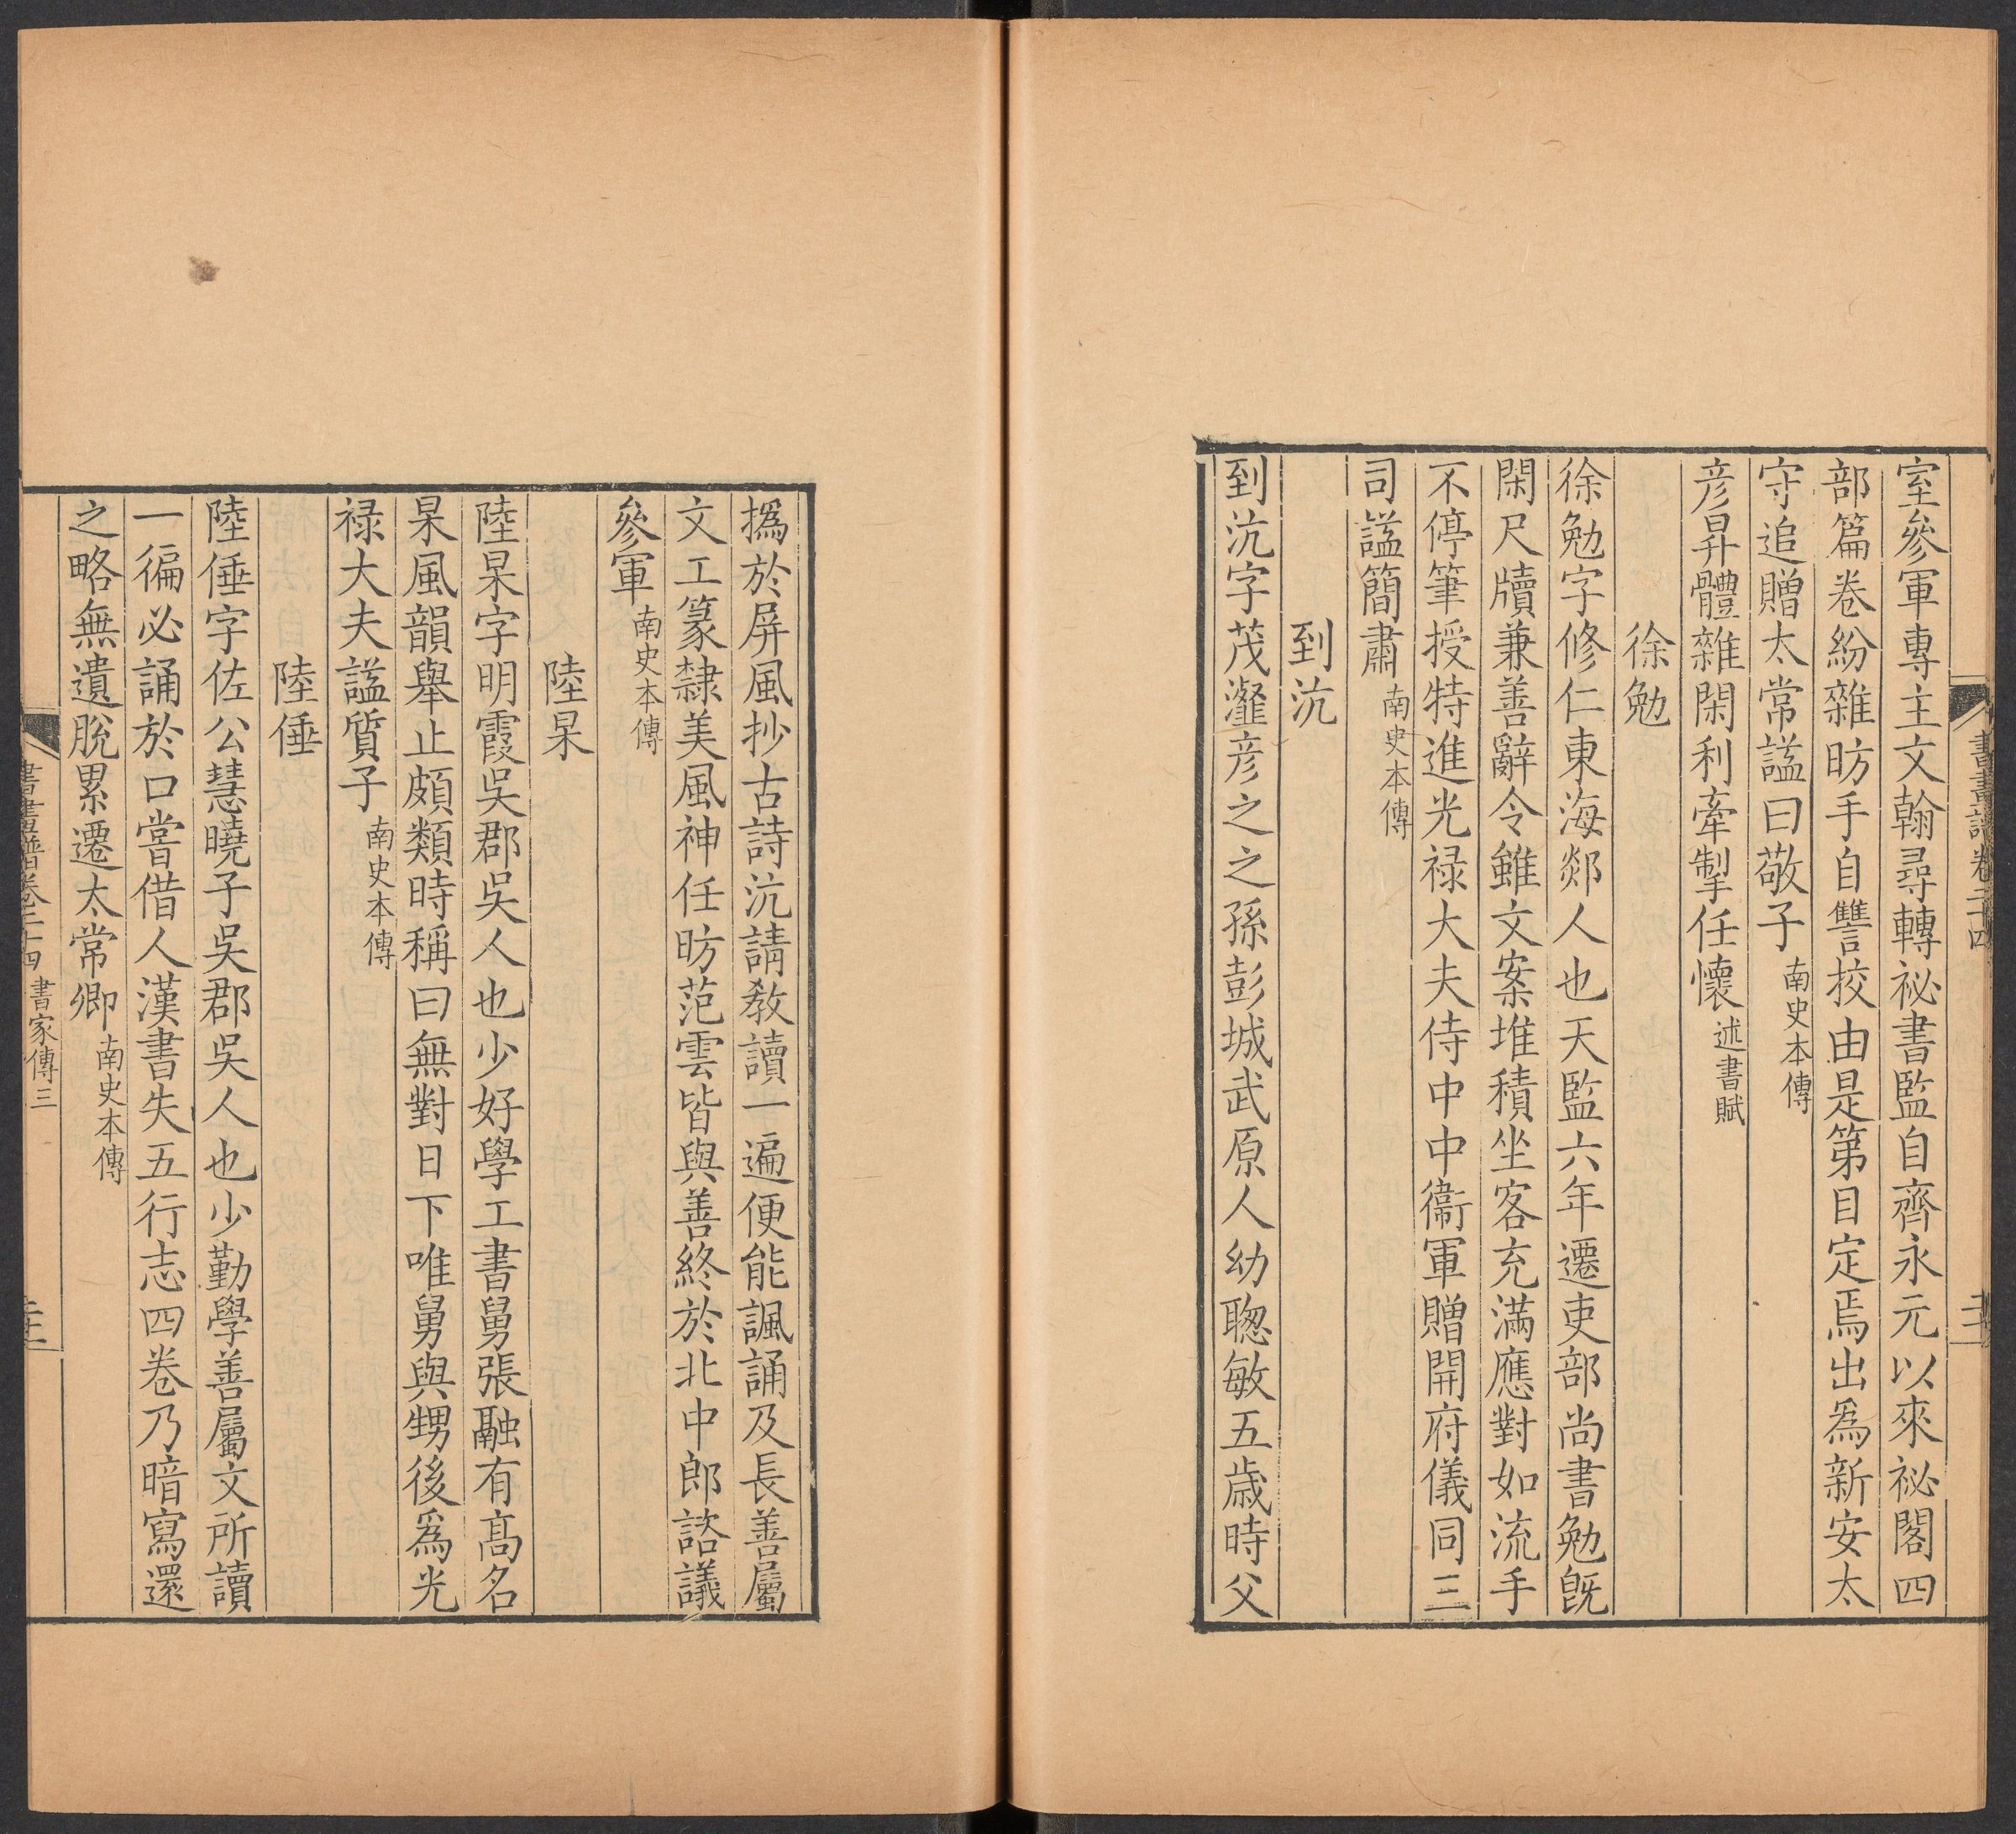 書畫譜卷二十四
室參軍專主文翰尋轉祕書監自齊永元以來祕閣四
部篇卷紛雜昉手自讐挍由是第目定焉出為新安太
守追贈太常謚曰敬子南史本傳
彦昇體雜閑利牽掣任懷述書賦
徐勉
徐勉字修仁東海郯人也天監六年遷吏部尚書勉既
閑尺牘兼善辭令雖文案堆積坐客充滿應對如流手
不停筆授特進光禄大夫侍中中衞軍贈開府儀同三
司謚簡肅南史本傳
到沆
到沆字茂瀣彦之之孫彭城武原人幼聰敏五歲時父
撝於屏風抄古詩沆請教讀一遍便能諷誦及長善屬
文工篆隸美風神任昉范雲皆與善終於北中郎諮議
參軍南史本傳
陸杲
陸杲字明霞吳郡吳人也少好學工書舅張融有髙名
杲風韻舉止頗類時稱曰無對日下唯舅與甥後爲光
禄大夫謚質子南史本傳
陸倕
陸倕字佐公慧曉子吳郡吳人也少勤學善屬文所讀
一徧必誦於口嘗借人漢書失五行志四卷乃暗寫還
之略無遺脫累遷太常卿南史本傳
書畫譜卷二十四 書家傳三